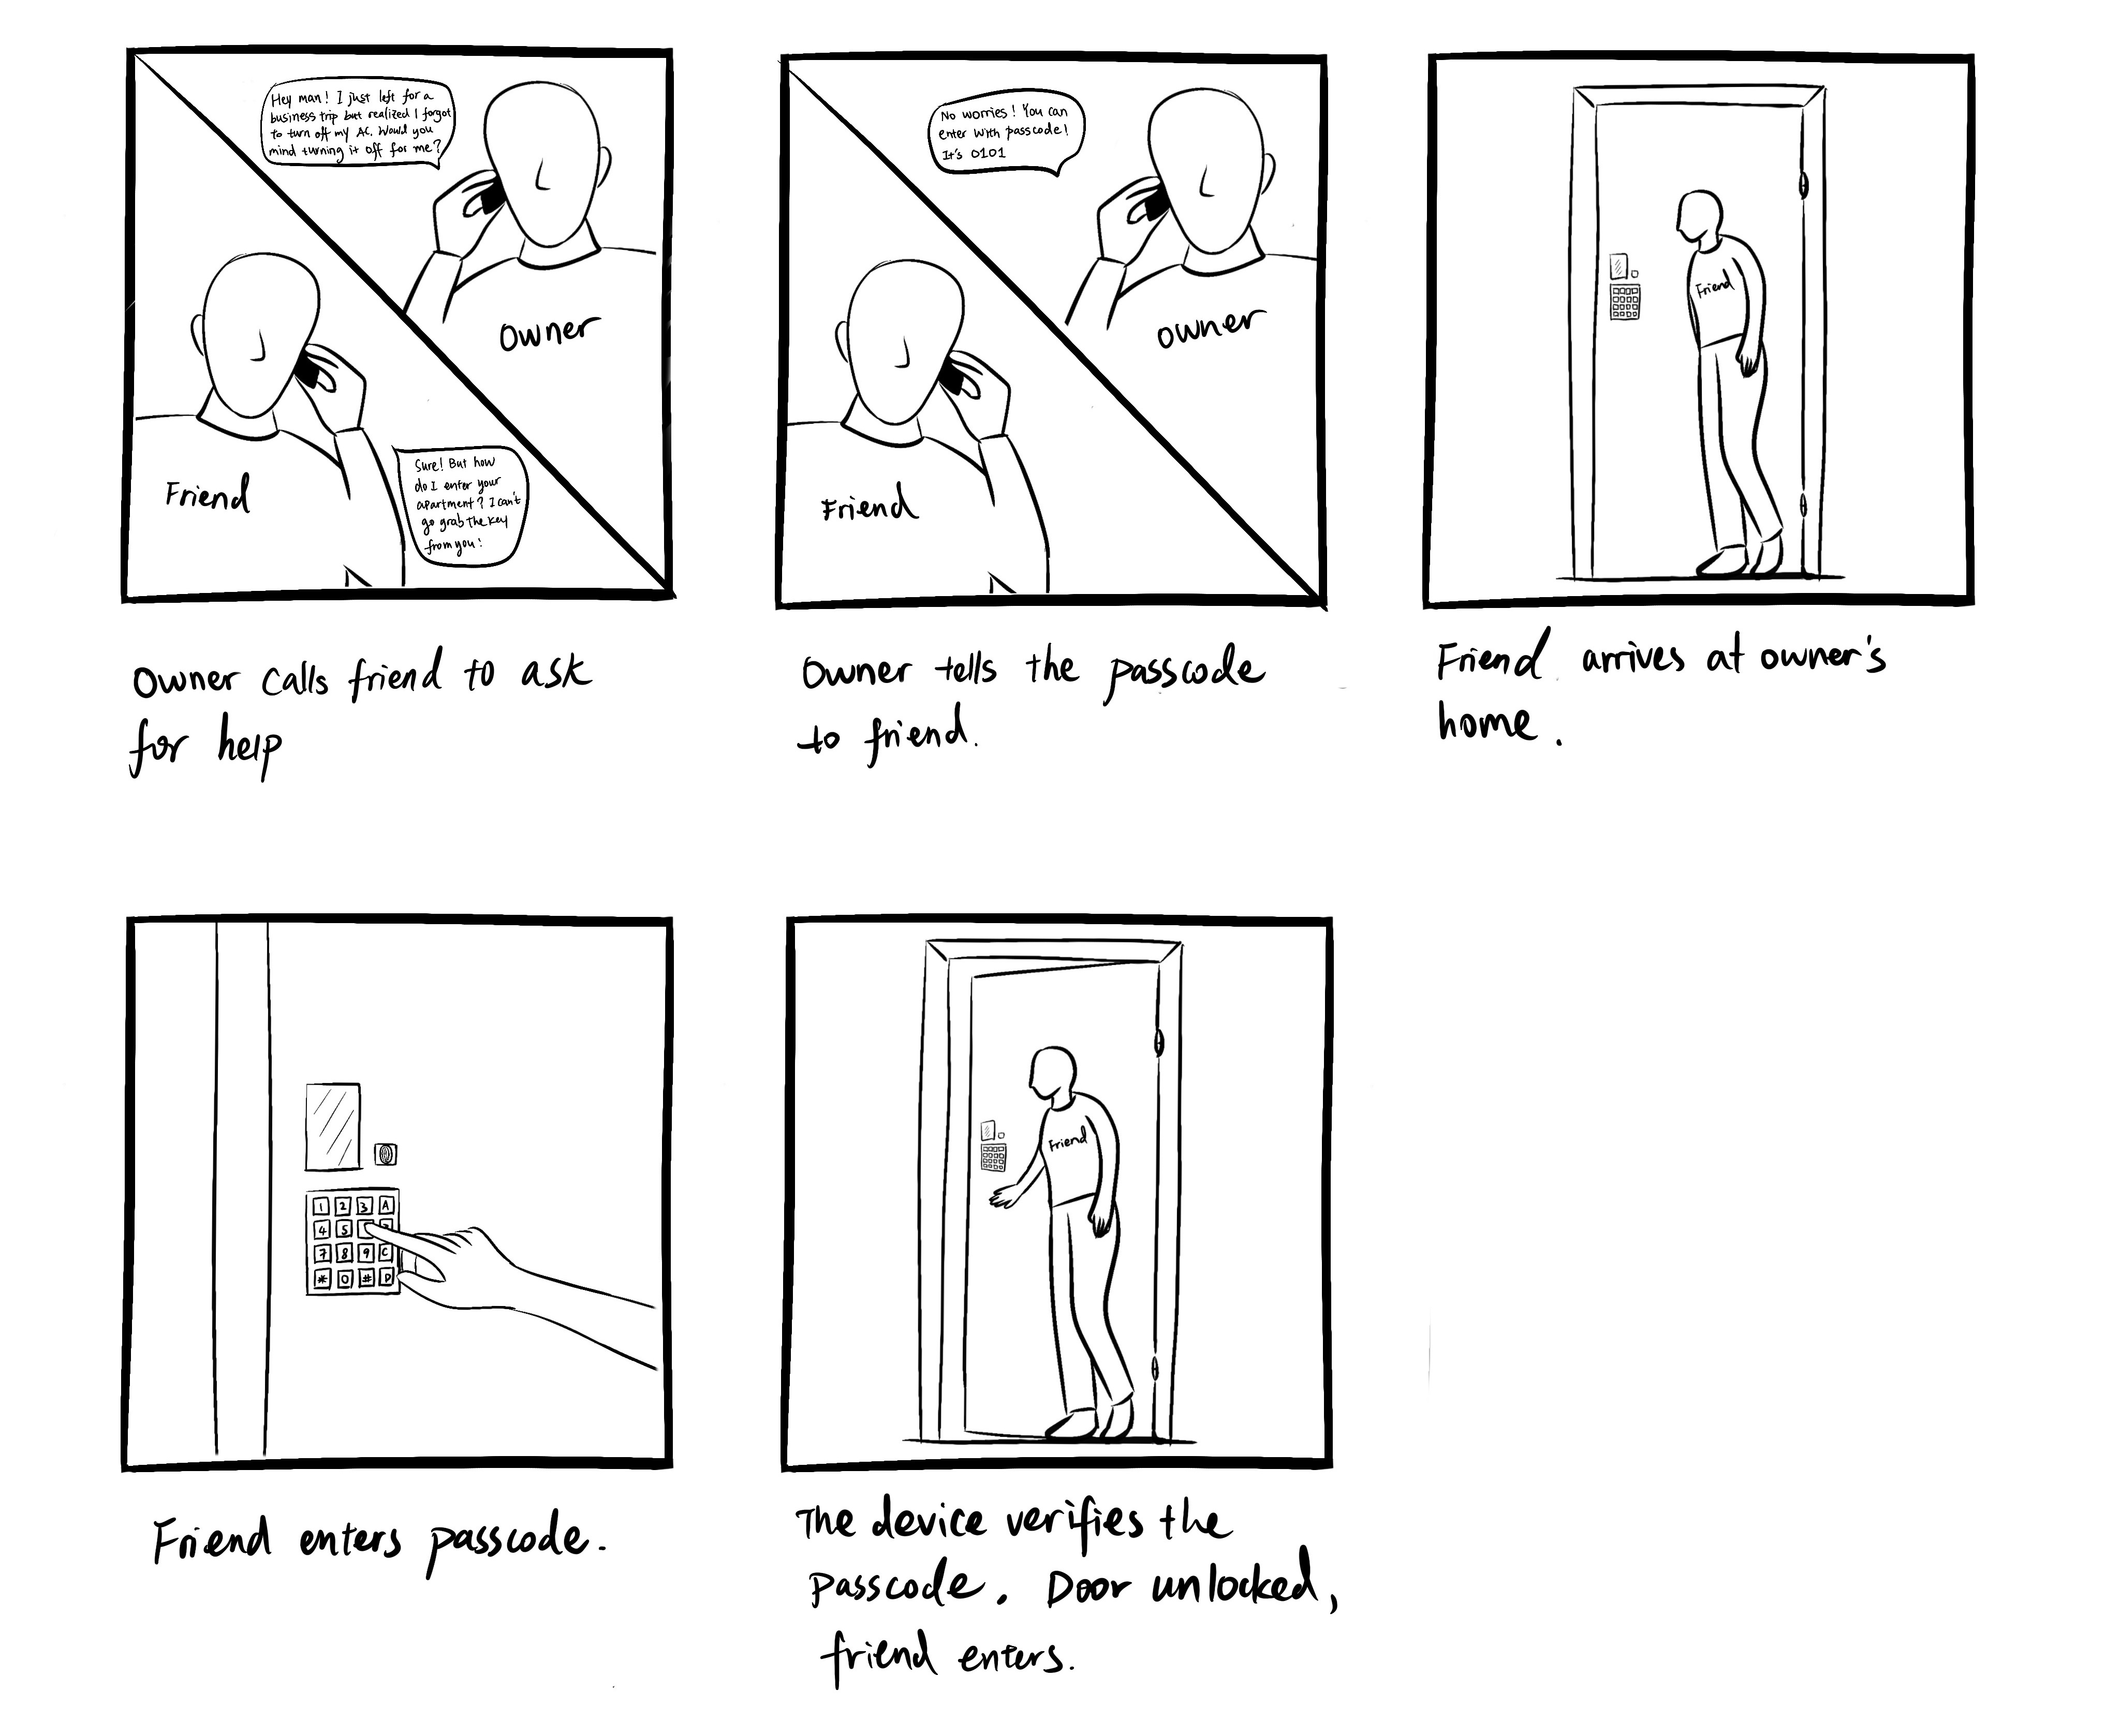 Hey man! I just left for a
business trip but realized I forgot
to turn off my AC. Would you
mind turning it off for me?
Owner
Friend
Sure! But how
do I enter your
apartment? I can't
go grab the key
from you!
Owner calls friend to ask
for help
No worries! You can
enter with passcode!
It's 0101
owner
Friend
Owner tells the passcode
to friend.
Friend
Friend arrives at owner's
home.
1 2 3 A
4 5
7 8 9 C
* 0 # D
Friend enters passcode.
Friend
The device verifies the
passcode. Door unlocked,
friend enters.